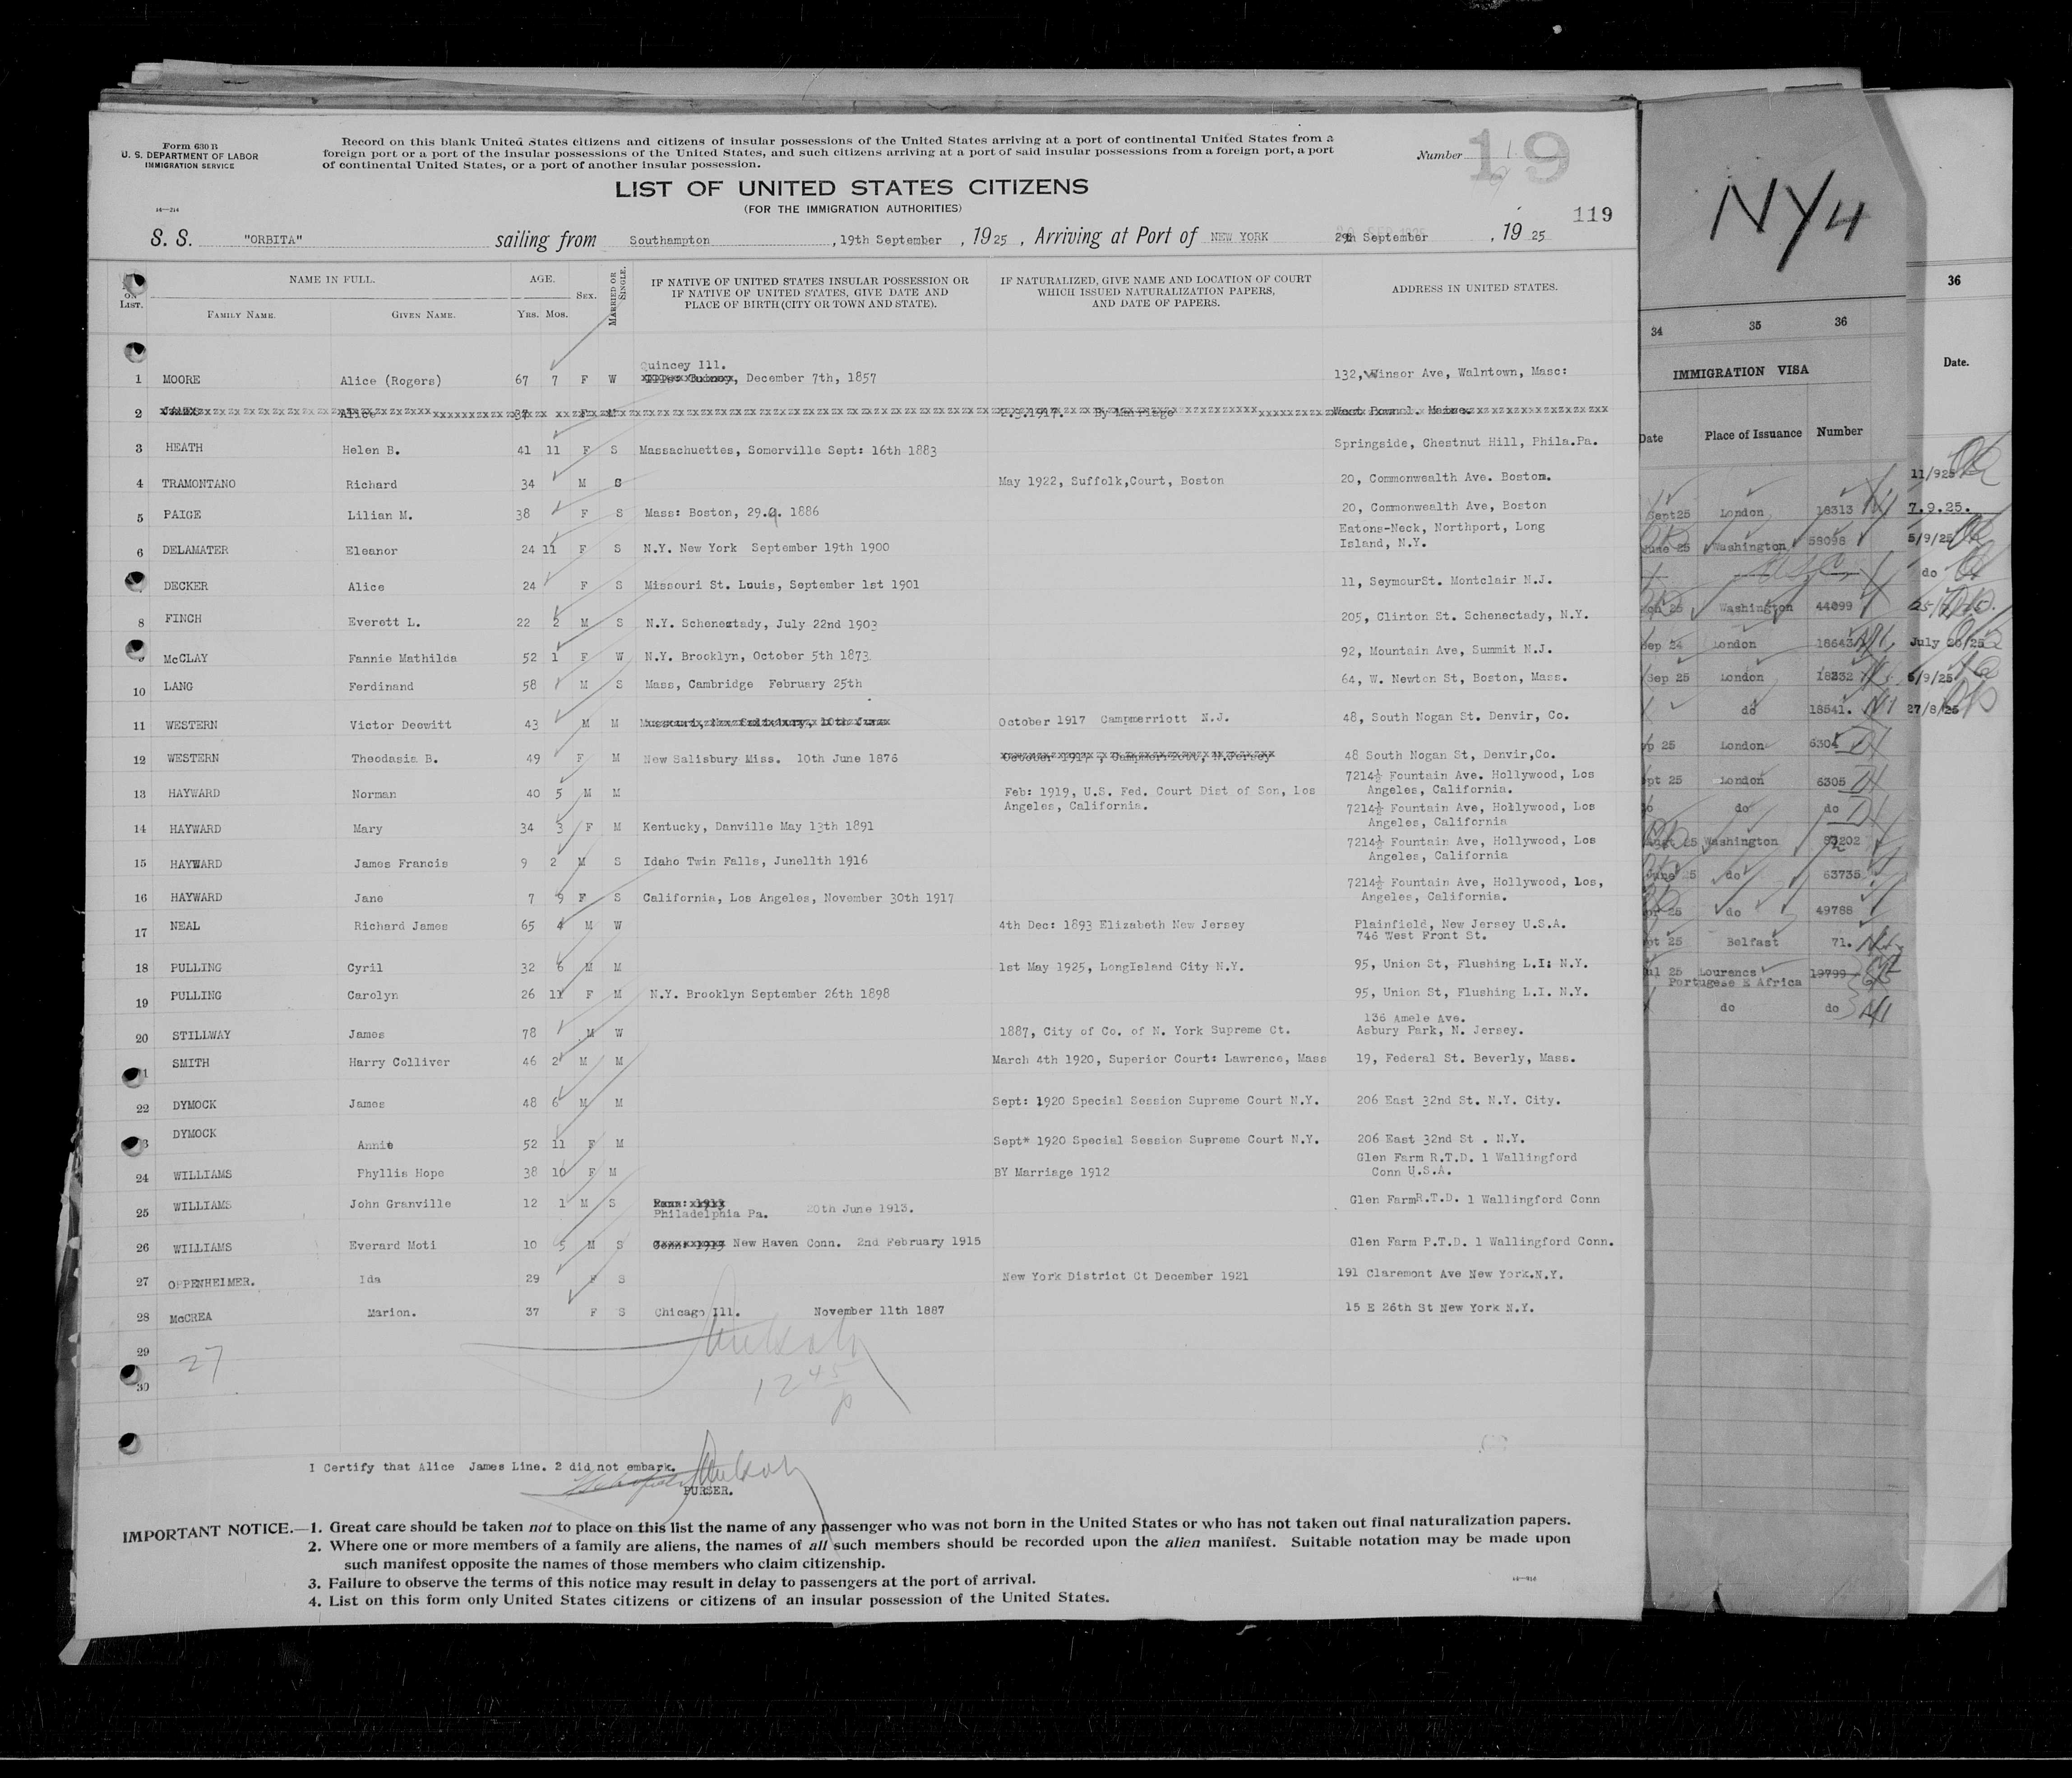 Form 630 B
U. S. DEPARTMENT OF LABOR
IMMIGRATION SERVICE
14—214
Record on this blank United States citizens and citizens of insular possessions of the United States arriving at a port of continental United States from a
foreign port or a port of the insular possessions of the United States, and such citizens arriving at a port of said insular possessions from a foreign port, a port
of continental United States, or a port of another insular possession.
Number 19
LIST OF UNITED STATES CITIZENS
(FOR THE IMMIGRATION AUTHORITIES)
119
S. S. "ORBITA" sailing from Southampton, 19th September, 1925, Arriving at Port of NEW YORK September, 1925
ON LIST. NAME IN FULL. FAMILY NAME. GIVEN NAME. AGE. Yrs. Mos. SEX. MARRIED OR SINGLE.
IF NATIVE OF UNITED STATES INSULAR POSSESSION OR
IF NATIVE OF UNITED STATES, GIVE DATE AND
PLACE OF BIRTH (CITY OR TOWN AND STATE).
IF NATURALIZED, GIVE NAME AND LOCATION OF COURT
WHICH ISSUED NATURALIZATION PAPERS,
AND DATE OF PAPERS.
ADDRESS IN UNITED STATES.
Quincey Ill.
1 MOORE Alice (Rogers) 67 7 F W December 7th, 1857 132, Winsor Ave, Walntown, Masc:
2 JAMES Alice 37 F M 2.3.1917. By Marriage West Pownol. Maine.
3 HEATH Helen B. 41 11 F S Massachuettes, Somerville Sept: 16th 1883 Springside, Chestnut Hill, Phila.Pa.
4 TRAMONTANO Richard 34 M S May 1922, Suffolk,Court, Boston 20, Commonwealth Ave. Boston.
5 PAIGE Lilian M. 38 F S Mass: Boston, 29.9. 1886 20, Commonwealth Ave, Boston
6 DELAMATER Eleanor 24 11 F S N.Y. New York September 19th 1900 Eatons-Neck, Northport, Long
Island, N.Y.
DECKER Alice 24 F S Missouri St. Louis, September 1st 1901 11, SeymourSt. Montclair N.J.
8 FINCH Everett L. 22 2 M S N.Y. Schenectady, July 22nd 1903 205, Clinton St. Schenectady, N.Y.
McCLAY Fannie Mathilda 52 1 F W N.Y. Brooklyn, October 5th 1873 92, Mountain Ave, Summit N.J.
10 LANG Ferdinand 58 M S Mass, Cambridge February 25th 64, W. Newton St, Boston, Mass.
11 WESTERN Victor Deowitt 43 M M October 1917 Campmerriott N.J. 48, South Nogan St. Denvir, Co.
12 WESTERN Theodasia B. 49 F M New Salisbury Miss. 10th June 1876 October 1917, Campmerriott, N.Jersey 48 South Nogan St, Denvir,Co.
13 HAYWARD Norman 40 5 M M Feb: 1919, U.S. Fed. Court Dist of Son, Los
Angeles, California. 7214½ Fountain Ave. Hollywood, Los
Angeles, California.
14 HAYWARD Mary 34 3 F M Kentucky, Danville May 13th 1891 7214½ Fountain Ave, Hollywood, Los
Angeles, California
15 HAYWARD James Francis 9 2 M S Idaho Twin Falls, June11th 1916 7214½ Fountain Ave, Hollywood, Los
Angeles, California
16 HAYWARD Jane 7 9 F S California, Los Angeles, November 30th 1917 7214½ Fountain Ave, Hollywood, Los,
Angeles, California.
17 NEAL Richard James 65 4 M W 4th Dec: 1893 Elizabeth New Jersey Plainfield, New Jersey U.S.A.
746 West Front St.
18 PULLING Cyril 32 6 M M 1st May 1925, LongIsland City N.Y. 95, Union St, Flushing L.I: N.Y.
19 PULLING Carolyn 26 11 F M N.Y. Brooklyn September 26th 1898 95, Union St, Flushing L.I. N.Y.
20 STILLWAY James 78 M W 1887, City of Co. of N. York Supreme Ct. 136 Amele Ave.
Asbury Park, N. Jersey.
1 SMITH Harry Colliver 46 2 M M March 4th 1920, Superior Court: Lawrence, Mass 19, Federal St. Beverly, Mass.
22 DYMOCK James 48 6 M M Sept: 1920 Special Session Supreme Court N.Y. 206 East 32nd St. N.Y. City.
3 DYMOCK Annie 52 11 F M Sept* 1920 Special Session Supreme Court N.Y. 206 East 32nd St . N.Y.
24 WILLIAMS Phyllis Hope 38 10 F M BY Marriage 1912 Glen Farm R.T.D. 1 Wallingford
Conn U.S.A.
25 WILLIAMS John Granville 12 1 M S Penn: 1913
Philadelphia Pa. 20th June 1913. Glen FarmR.T.D. 1 Wallingford Conn
26 WILLIAMS Everard Moti 10 5 M S New Haven Conn. 2nd February 1915 Glen Farm P.T.D. 1 Wallingford Conn.
27 OPPENHEIMER. Ida 29 F S New York District Ct December 1921 191 Claremont Ave New York.N.Y.
28 McCREA Marion. 37 F S Chicago Ill. November 11th 1887 15 E 26th St New York N.Y.
29
30
27
12 45
p
I Certify that Alice James Line. 2 did not embark.
PURSER.
IMPORTANT NOTICE.—1. Great care should be taken not to place on this list the name of any passenger who was not born in the United States or who has not taken out final naturalization papers.
2. Where one or more members of a family are aliens, the names of all such members should be recorded upon the alien manifest. Suitable notation may be made upon
such manifest opposite the names of those members who claim citizenship.
3. Failure to observe the terms of this notice may result in delay to passengers at the port of arrival.
4. List on this form only United States citizens or citizens of an insular possession of the United States.
NY4
34 35 36
IMMIGRATION VISA
Date Place of Issuance Number
Sept25 London 18313
June 25 Washington 59098
Washington 44099
Sep 24 London 18643
Sep 25 London 18232
do 18541.
25 London 6304
pt 25 London 6305
do do
25 Washington
June 25 do 63735
25 do 49788
pt 25 Belfast 71.
ul 25 Lourencs 19799
Portugese E Africa
do do
36
Date.
11/925
7.9.25.
5/9/25
do
July 20/25
6/9/25
27/8/25